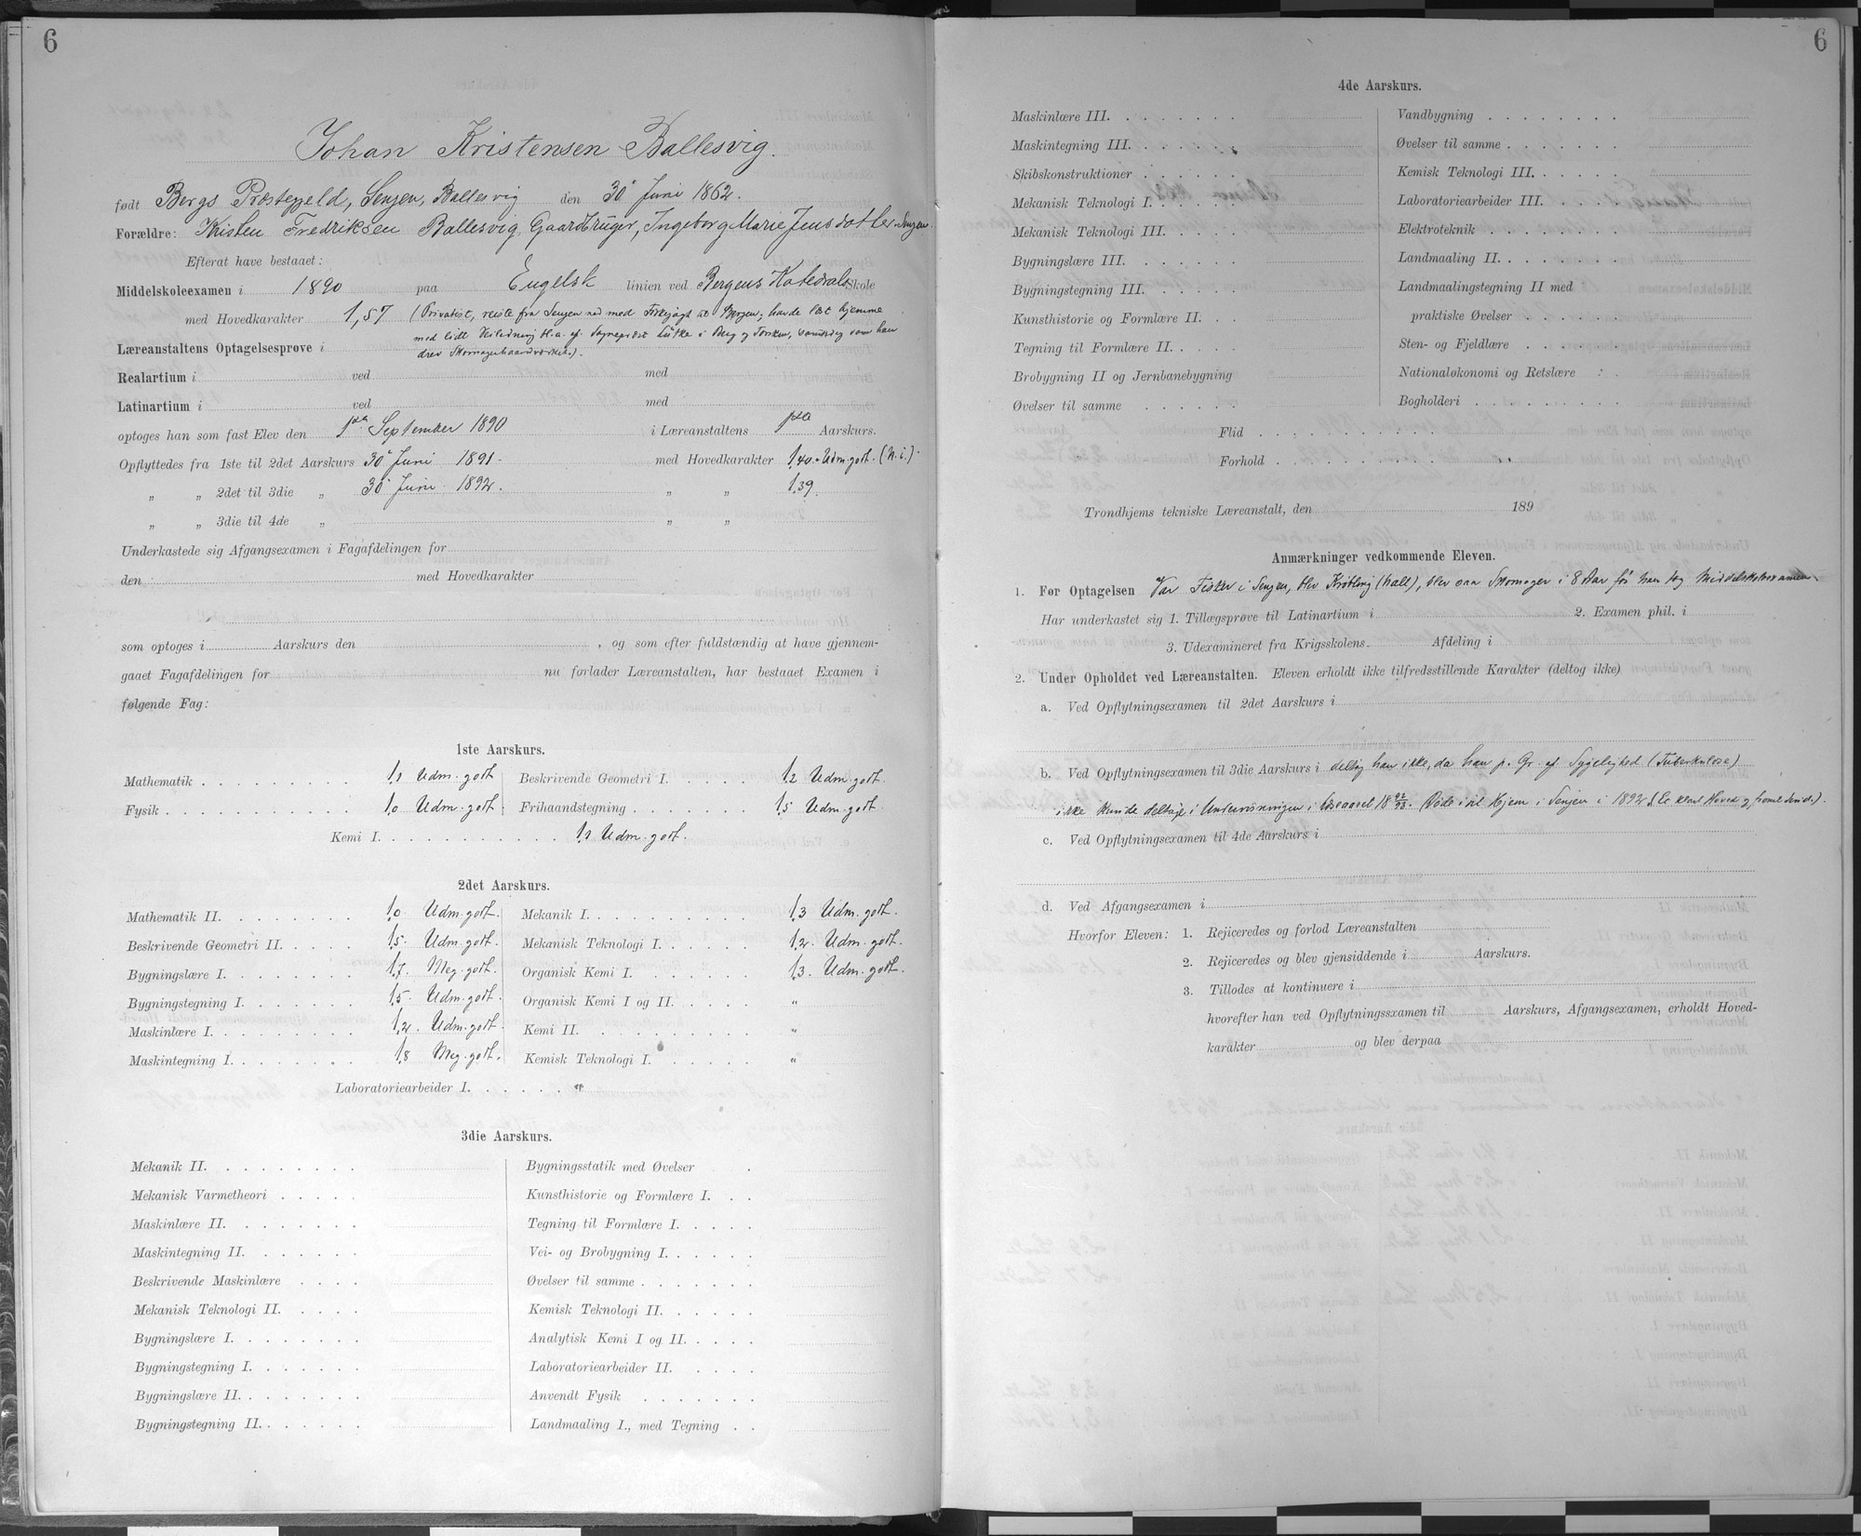 6
Johan Kristensen Ballesvig.
født Bergs Præstegjeld, Senjen, Ballesvig den 30' Juni 1862.
Forældre: Kristen Fredriksen Ballesvig, Gaardbruger, Ingeborg Marie Jensdatter Senjen.
Efterat have bestaaet:
Middelskoleexamen i 1890 paa Engelsk linien ved Bergens Katedral Skole
med Hovedkarakter 1,57 (Privatist, reiste fra Senjen ned med til Bergen; havde læst hjemme
med lidt Veiledning bl.a. af Sogneprest Lütke i Berg og Torsken, samtidig som han
Læreanstaltens Optagelsesprøve i drev Skomagerhaandverket.).
Realartium i ved med
Latinartium i ved med
optoges han som fast Elev den 1ste September 1890 i Læreanstaltens 1ste Aarskurs.
Opflyttedes fra 1ste til 2det Aarskurs 30' Juni 1891. med Hovedkarakter 1,40. Udm. godt. (n. i.).
„ „ 2det til 3die „ 30' Juni 1892. „ „ 1,39.
„ „ 3die til 4de „ „ „
Underkastede sig Afgangsexamen i Fagafdelingen for
den med Hovedkarakter
som optoges i Aarskurs den , og som efter fuldstændig at have gjennem-
gaaet Fagafdelingen for nu forlader Læreanstalten, har bestaaet Examen i
følgende Fag:
1ste Aarskurs.
Mathematik 1,1 Udm. godt Beskrivende Geometri I. 1,2 Udm. godt.
Fysik 1,0 Udm. godt Frihaandstegning 1,5 Udm. godt.
Kemi I. 1,1 Udm. godt.
2det Aarskurs.
Mathematik II. 1,0 Udm. godt. Mekanik I. 1,3 Udm. godt.
Beskrivende Geometri II. 1,5. Udm. godt. Mekanisk Teknologi I. 1,2. Udm. godt.
Bygningslære I. 1,7. Meg. godt. Organisk Kemi I. 1,3. Udm. godt.
Bygningstegning I. 1,5. Udm. godt. Organisk Kemi I og II. „
Maskinlære I. 1,2. Udm. godt. Kemi II. „
Maskintegning I. 1,8 Meg. godt. Kemisk Teknologi I. „
Laboratoriearbeider I. „
3die Aarskurs.
Mekanik II. Bygningsstatik med Øvelser
Mekanisk Varmetheori Kunsthistorie og Formlære I.
Maskinlære II. Tegning til Formlære I.
Maskintegning II. Vei- og Brobygning I.
Beskrivende Maskinlære Øvelser til samme
Mekanisk Teknologi II. Kemisk Teknologi II.
Bygningslære I. Analytisk Kemi I og II.
Bygningstegning I. Laboratoriearbeider II.
Bygningslære II. Anvendt Fysik
Bygningstegning II. Landmaaling I., med Tegning
6
4de Aarskurs.
Maskinlære III. Vandbygning
Maskintegning III. Øvelser til samme
Skibskonstruktioner Kemisk Teknologi III.
Mekanisk Teknologi I. Laboratoriearbeider III.
Mekanisk Teknologi III. Elektroteknik
Bygningslære III. Landmaaling II.
Bygningstegning III. Landmaalingstegning II med
Kunsthistorie og Formlære II. praktiske Øvelser
Tegning til Formlære II. Sten- og Fjeldlære
Brobygning II og Jernbanebygning Nationaløkonomi og Retslære
Øvelser til samme Bogholderi
Flid
Forhold
Trondhjems tekniske Læreanstalt, den 189
Anmærkninger vedkommende Eleven.
1. Før Optagelsen Var Fisker i Senjen, blev Krøbling (halt), blev saa Skomager i 8 Aar før han tog Middelskoleexamen.
Har underkastet sig 1. Tillægsprøve til Latinartium i 2. Examen phil. i
3. Udexamineret fra Krigsskolens Afdeling i
2. Under Opholdet ved Læreanstalten. Eleven erholdt ikke tilfredsstillende Karakter (deltog ikke)
a. Ved Opflytningsexamen til 2det Aarskurs i
b. Ved Opflytningsexamen til 3die Aarskurs i deltog han ikke, da han p. Gr. af Sygelighed (Tuberkulose)
ikke kunde deltage i Undervisningen i Læseaaret 18 92/93. Døde i sit Hjem i Senjen i 1892 klart Hoved og
c. Ved Opflytningsexamen til 4de Aarskurs i
d. Ved Afgangsexamen i
Hvorfor Eleven: 1. Rejiceredes og forlod Læreanstalten
2. Rejiceredes og blev gjensiddende i Aarskurs.
3. Tillodes at kontinuere i
hvorefter han ved Opflytningssxamen til Aarskurs, Afgangsexamen, erholdt Hoved-
karakter og blev derpaa